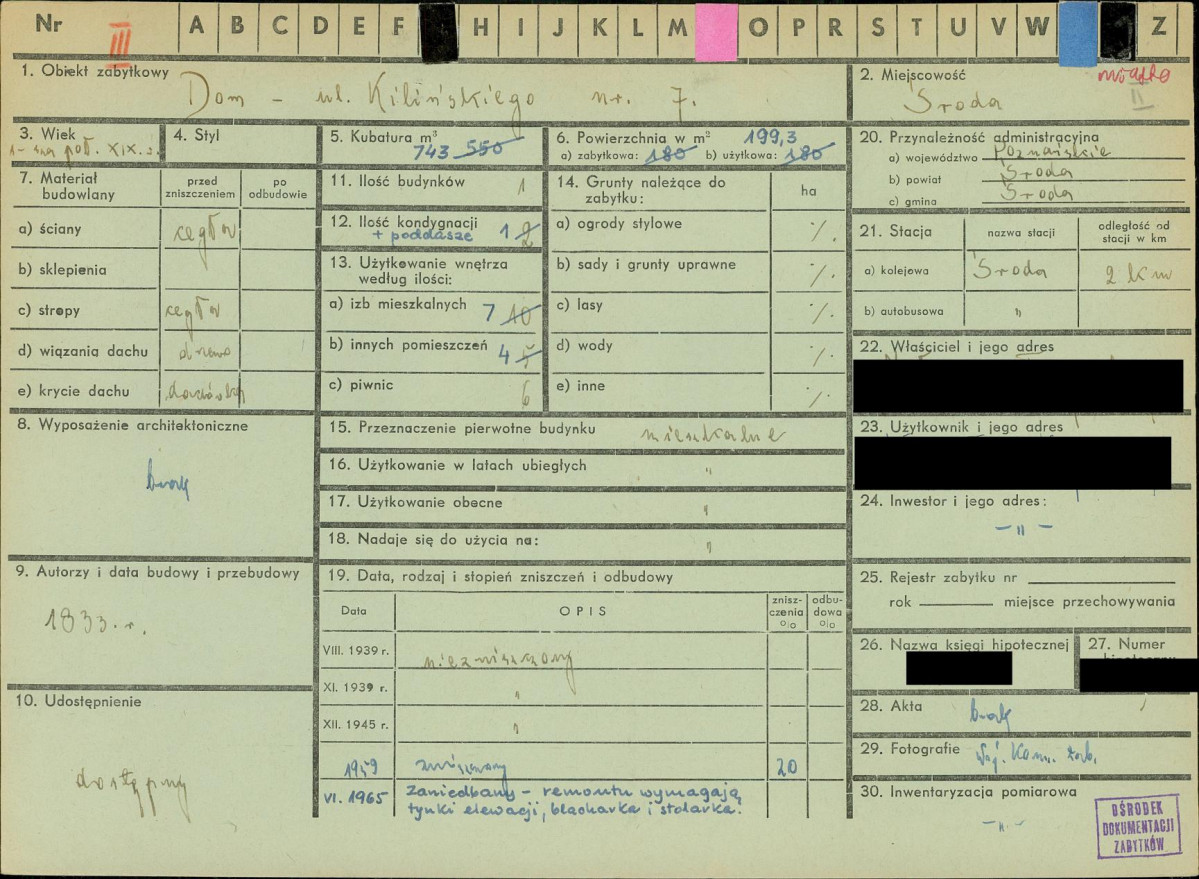 Nr III A B C D E F H I J K L M O P R S T U V W Z
1. Obiekt zabytkowy
Dom – ul. Kilińskiego nr. 7.
2. Miejscowość
miasto
Środa II
3. Wiek
1-sza poł. XIX. w.
4. Styl
5. Kubatura m³
743 550
6. Powierzchnia w m² 199,3
a) zabytkowa: 180 b) użytkowa: 180
7. Materiał budowlany
przed zniszczeniem
po odbudowie
a) ściany cegła
b) sklepienia
c) stropy cegła
d) wiązania dachu drzewo
e) krycie dachu dachówka
8. Wyposażenie architektoniczne
brak
9. Autorzy i data budowy i przebudowy
1833. r.
10. Udostępnienie
dostępny
11. Ilość budynków 1
12. Ilość kondygnacji 1 2
+ poddasze
13. Użytkowanie wnętrza
według ilości:
a) izb mieszkalnych 7 10
b) innych pomieszczeń 4 5
c) piwnic 6
14. Grunty należące do
zabytku:
ha
a) ogrody stylowe ./.
b) sady i grunty uprawne ./.
c) lasy ./.
d) wody ./.
e) inne ./.
15. Przeznaczenie pierwotne budynku mieszkalne
16. Użytkowanie w latach ubiegłych "
17. Użytkowanie obecne "
18. Nadaje się do użycia na: "
19. Data, rodzaj i stopień zniszczeń i odbudowy
Data
OPIS
znisz-
czenia
%
odbu-
dowa
%
VIII. 1939 r. niezniszczony
XI. 1939 r. "
XII. 1945 r. "
1959 zniszczony 20
VI. 1965 zaniedbany – remontu wymagają
tynki elewacji, blacharka i stolarka.
20. Przynależność administracyjna
a) województwo Poznańskie
b) powiat Środa
c) gmina Środa
21. Stacja
nazwa stacji
odległość od
stacji w km
a) kolejowa Środa 2 km
b) autobusowa "
22. Właściciel i jego adres
23. Użytkownik i jego adres
24. Inwestor i jego adres:
– " –
25. Rejestr zabytku nr
rok miejsce przechowywania
26. Nazwa księgi hipotecznej
27. Numer
28. Akta brak
29. Fotografie Woj. Kons. Zab.
30. Inwentaryzacja pomiarowa
– " –
OŚRODEK
DOKUMENTACJI
ZABYTKÓW